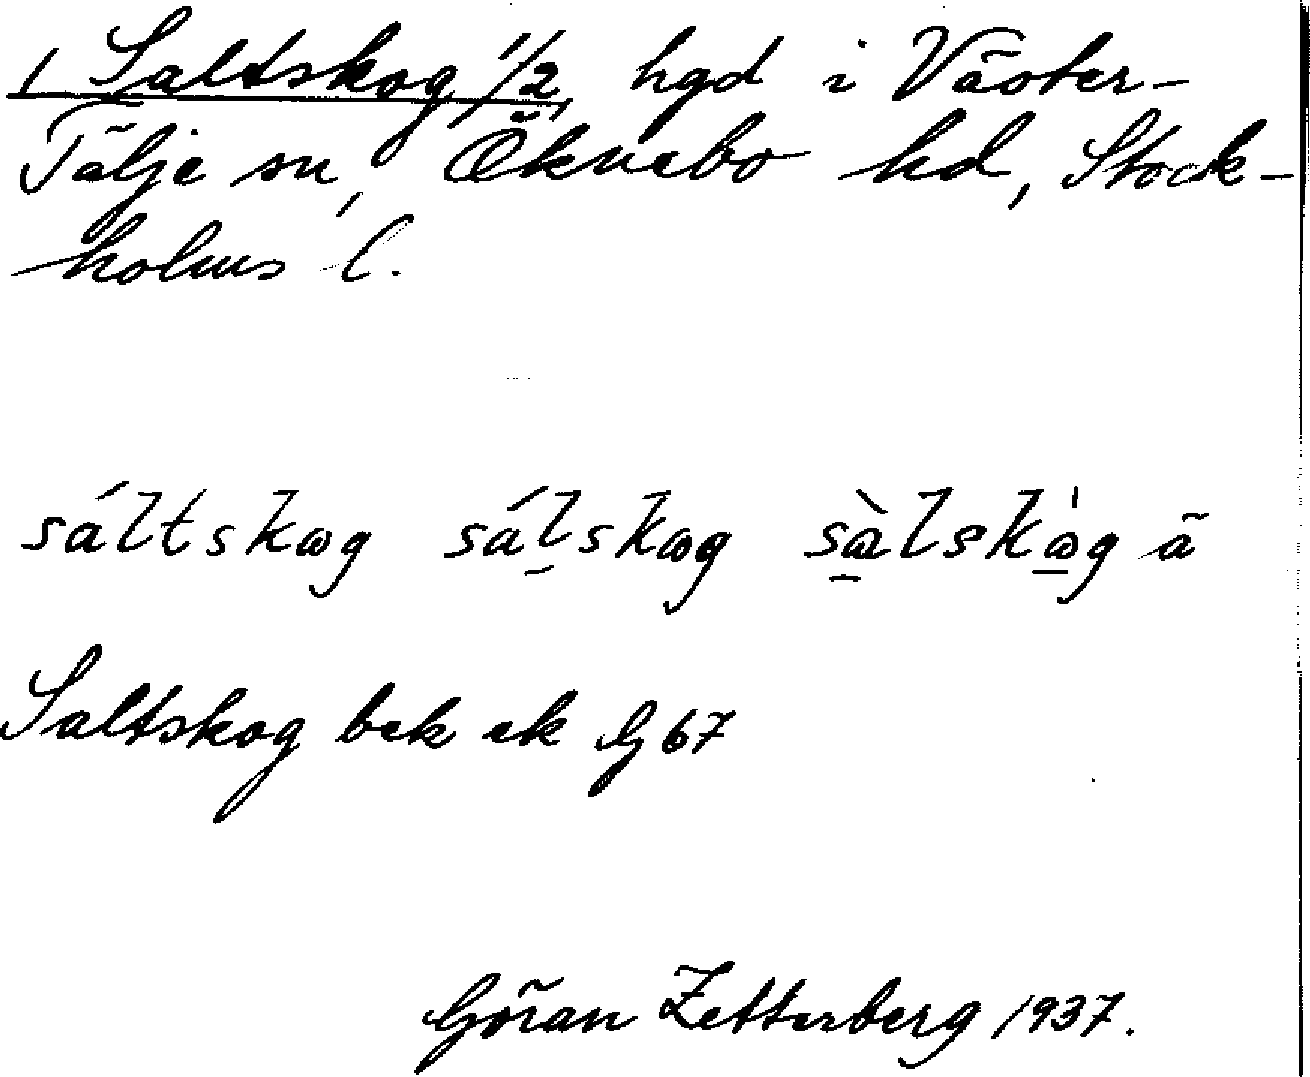 1 Saltskog 1/2, hgd i Väster-
Tälje sn, Öknebo hd, Stock-
holms l.
sáltskωg sálskωg sὰlskὼg ä
Saltskog bek ek G 67
Göran Zetterberg 1937.